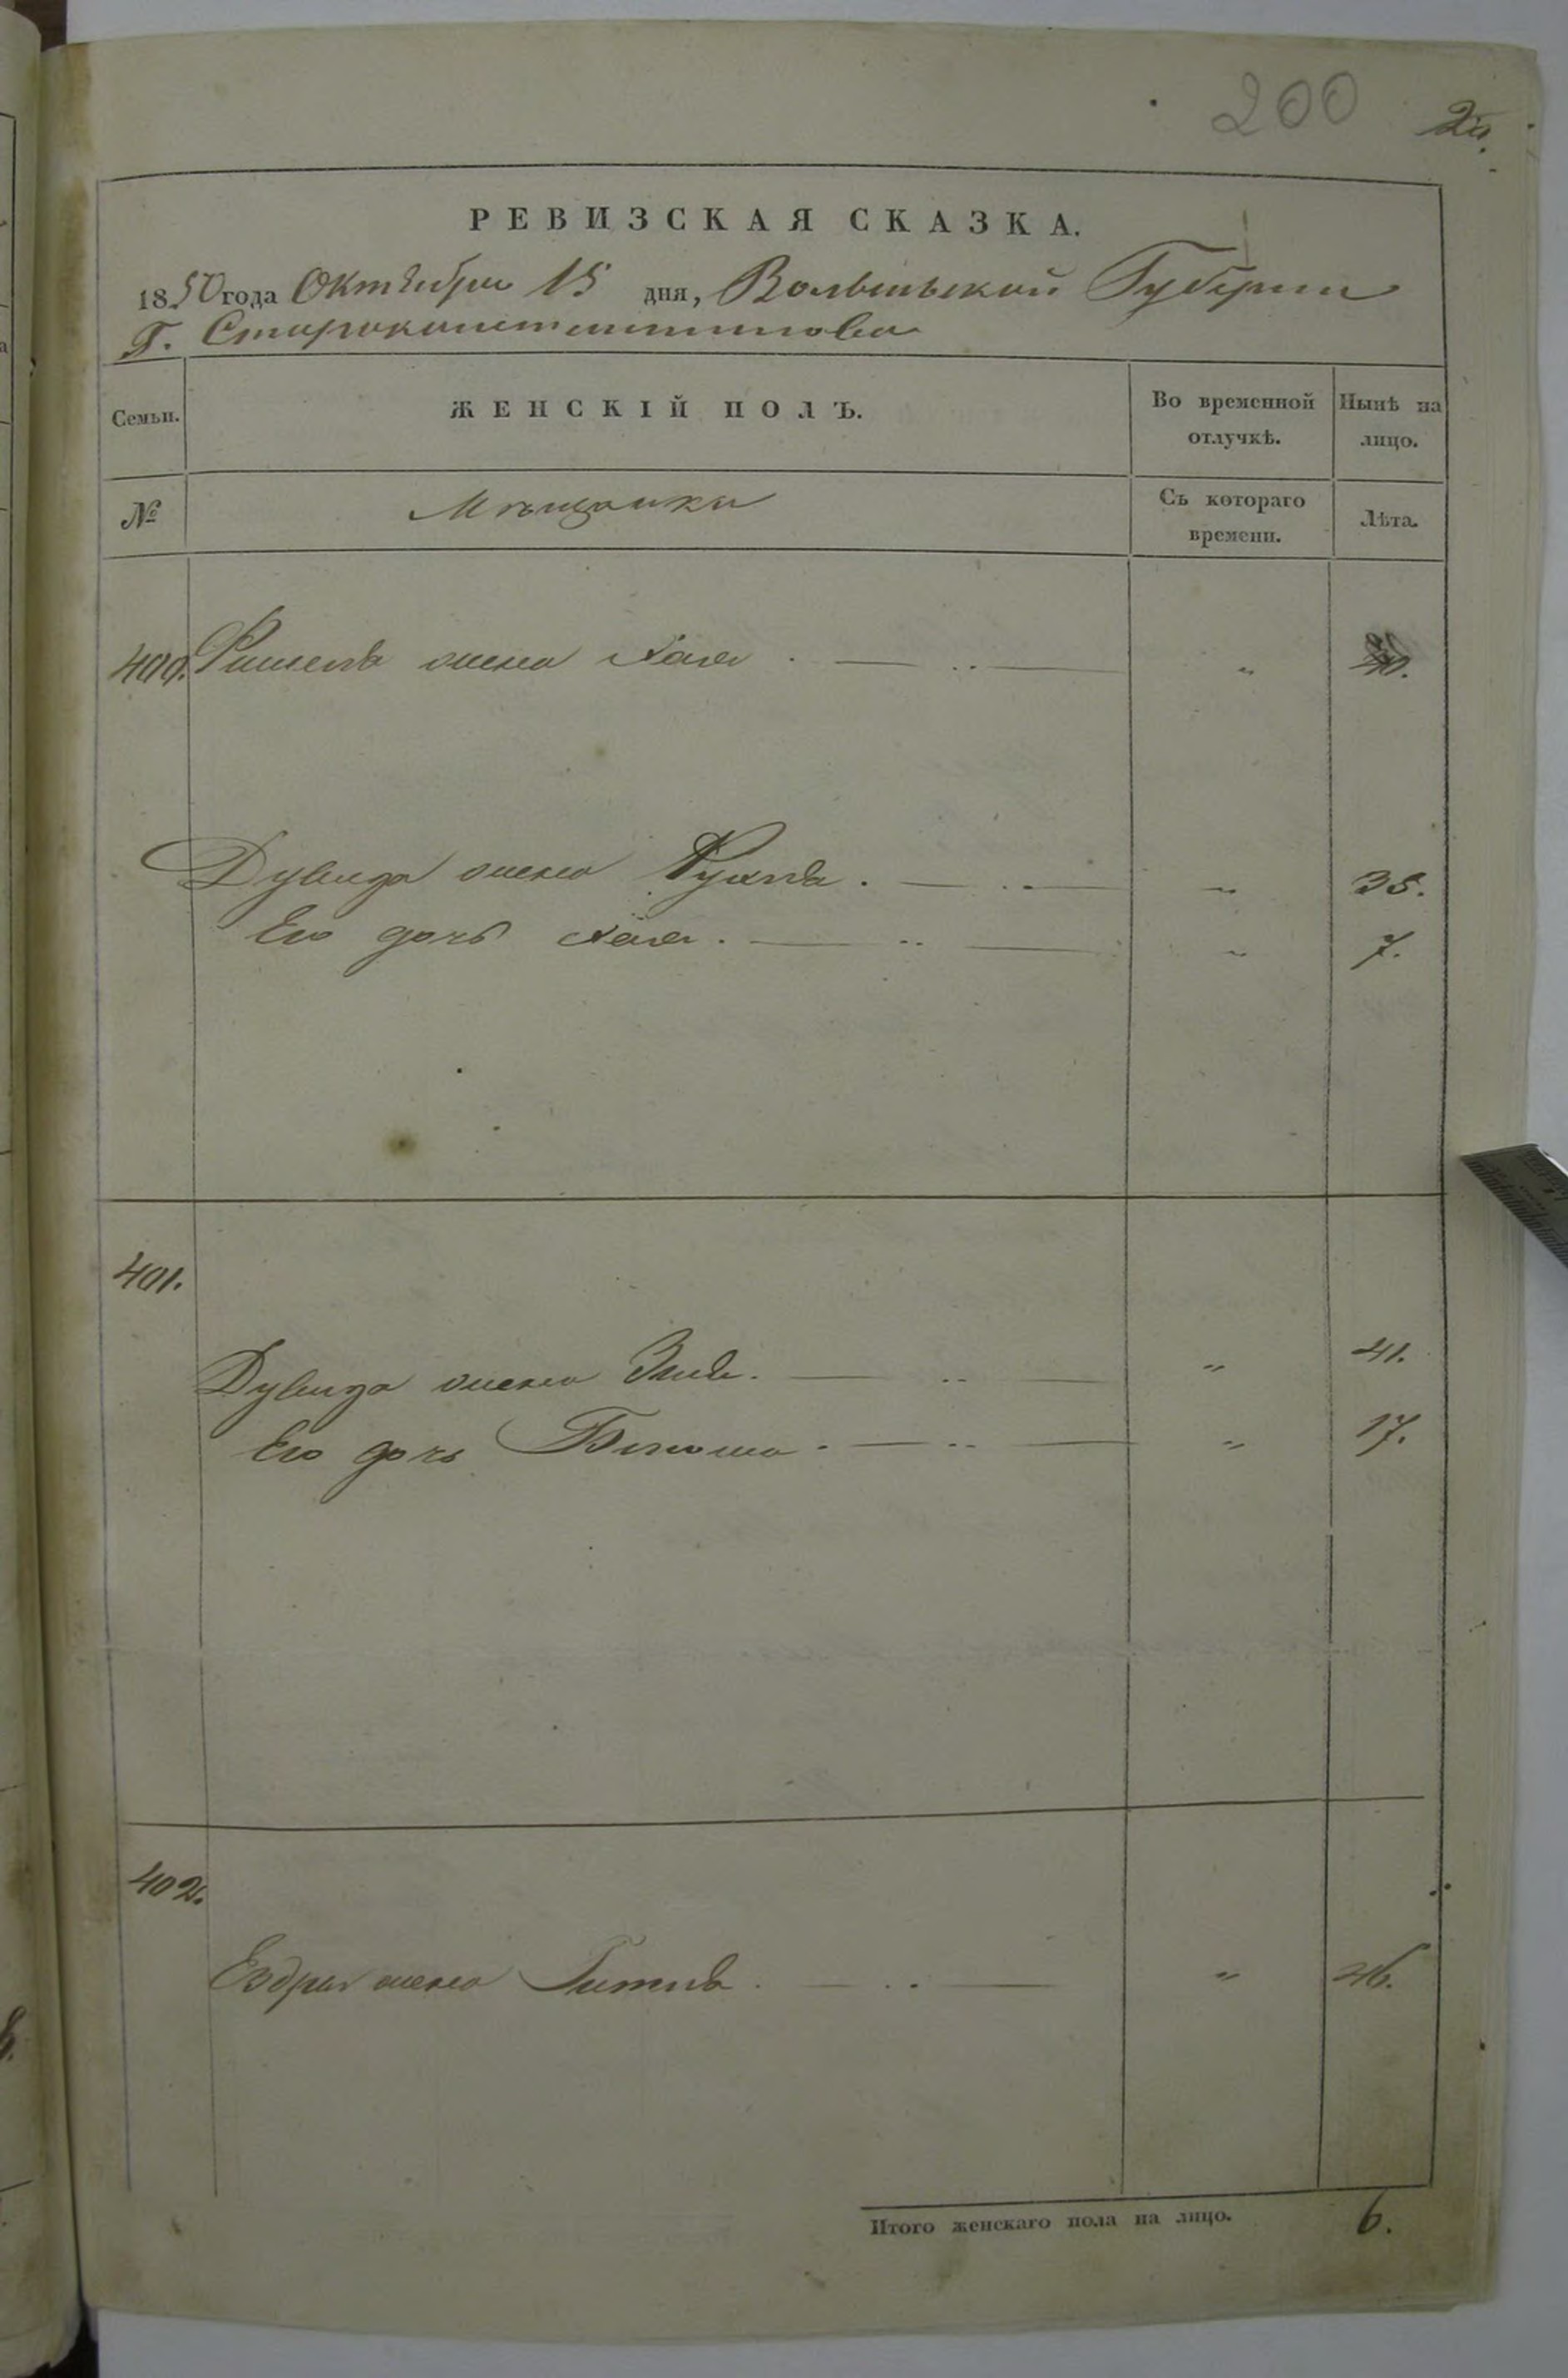 200
РЕВИЗСКАЯ СКАЗКА.
1850 года Октября 15 дня, Волынской Губернии
Г. Староконстантинова
Семьи.
ЖЕНСКІЙ ПОЛЪ.
Во временной отлучкѣ.
Нынѣ на лицо.
№
Мѣщанки
Съ котораго времени.
Лѣта.
400. жена Хая . — .. — „
Дувида жена Рухля . — .. — „ 35.
Его дочь Хая . — .. — „ 7.
401.
Дувида жена . — .. — „ 41.
Его дочь . — .. — „ 17.
402.
Ездры жена Гитля . — .. — „ 46.
Итого женскаго пола на лицо. 6.